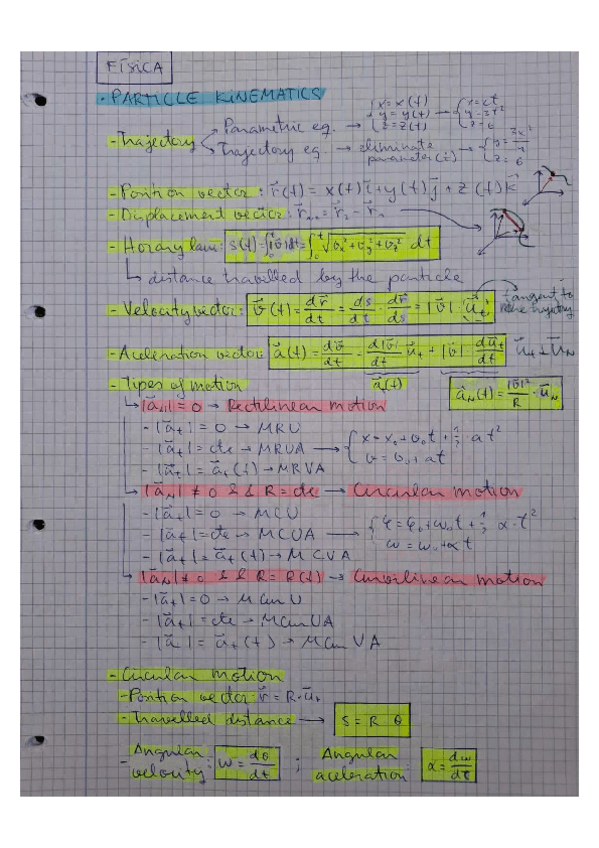 FÍSICA
· PARTICLE KINEMATICS
- Trajectory
Parametric eq. → { x = x(t) y = y(t) z = z(t) → { x = ct y = 3t² z = 6
Trajectory eq. → eliminate parameter (t) → { y = 3x² z = 6
- Position vector: r⃗(t) = x(t) i⃗ + y(t) j⃗ + z(t) k⃗
- Displacement vector:
- Horary law: s(t) = ∫₀ᵗ |v⃗| dt = ∫₀ᵗ √(vx² + vy² + vz²) dt
↳ distance travelled by the particle
- Velocity vector: v⃗(t) = dr⃗/dt = ds/dt · dr⃗/ds = |v⃗| · u⃗t → tangent to the trajectory
- Aceleration vector: a⃗(t) = dv⃗/dt = d|v⃗|/dt u⃗t + |v⃗| · du⃗t/dt u⃗t ⊥ u⃗N
a⃗t(t) a⃗N(t) = |v⃗|²/R · u⃗N
- Types of motion
↳ |a⃗N| = 0 → Rectilinear motion
- |a⃗t| = 0 → MRU
- |a⃗t| = cte → MRUA → { x = x₀ + v₀t + ½ · at² v = v₀ + at
- |a⃗t| = a⃗t(t) → MRVA
↳ |a⃗N| ≠ 0 && R = cte → Circular motion
- |a⃗t| = 0 → MCU
- |a⃗t| = cte → MCUA → { φ = φ₀ + ω₀t + ½ α · t² ω = ω₀ + αt
- |a⃗t| = a⃗t(t) → MCVA
↳ |a⃗N| ≠ 0 && R = R(t) → Curvilinear motion
- |a⃗t| = 0 → MCurU
- |a⃗t| = cte → MCurUA
- |a⃗t| = a⃗t(t) → MCurVA
- Circular motion
- Position vector: r⃗ = R · u⃗r
- Travelled distance → S = R · θ
- Angular velocity: ω = dθ/dt ; Angular aceleration: α = dω/dt